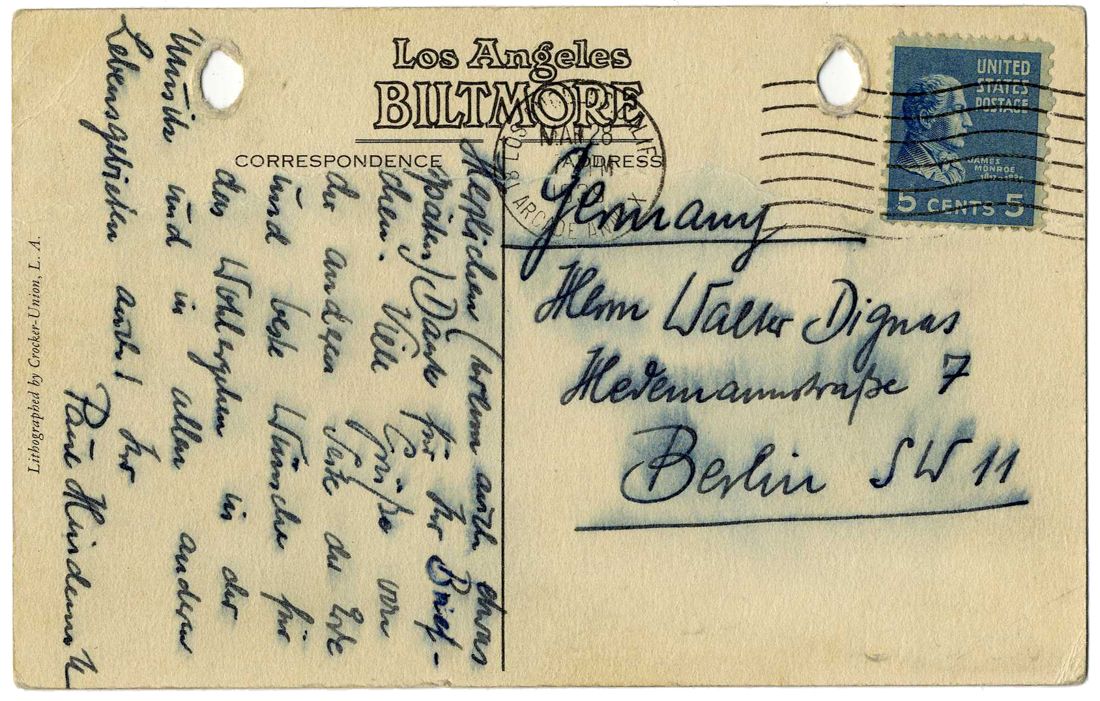 Los Angeles
BILTMORE
CORRESPONDENCE
ADDRESS
UNITED
STATES
POSTAGE
JAMES
MONROE
5 CENTS 5
MAR 28
PM
ARCADE ANNEX
Germany
Herrn Walter Dignas
Hedemannstraße 7
Berlin SW 11
Herzlichen (wenn auch etwas
späten) Dank für Ihr Brief-
chen. Viele Grüße von
der anderen Seite der Erde
und beste Wünsche für
das Wohlergehen in der
Musik und in allen anderen
Lebensgebieten auch! Ihr
Paul Hindemith
Lithographed by Crocker-Union, L. A.